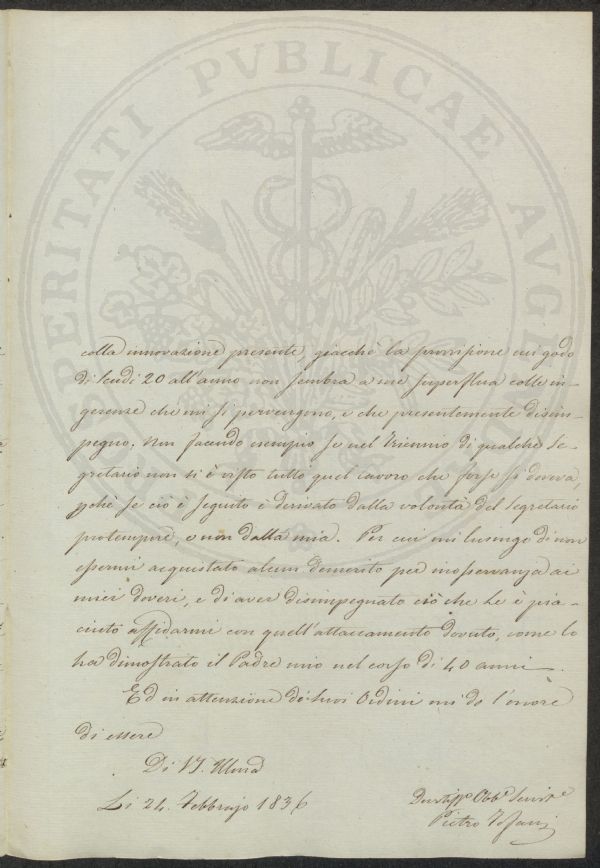 PROSPERITATI PVBLICAE AVGENDAE
colla innovazione presente, giacchè la provvisione cui godo
di Scudi 20 all'anno non sembra a me superflua colle in-
gerenze che mi si pervengono, e che presentemente disim-
pegno; Non facendo esempio se nel Triennio di qualche Se-
gretario non si è visto tutto quel lavoro che forse si doveva,
pchè se ciò è seguito è derivato dalla volontà del Segretario
protempore, e non dalla mia. Per cui mi lusingo di non
essermi acquistato alcun demerito per inosservanza ai
miei doveri, e di aver disimpegnato ciò che Le è pia-
ciuto affidarmi con quell'attaccamento dovuto, come lo
ha dimostrato il Padre mio nel corso di 40 anni.
Ed in attenzione de' Suoi Ordini mi do l'onore
di essere
Di V.S. Illma
Li 24 Febbrajo 1836
Obbo Servite
Pietro